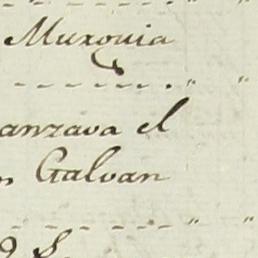 Murguia
anzava el
n Galvan